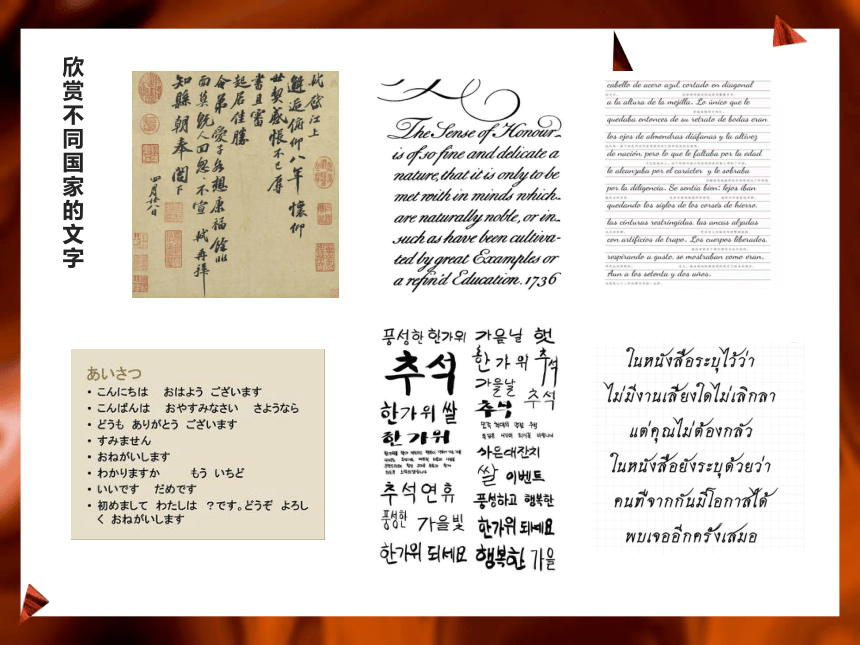 欣赏不同国家的文字
軾啓江上
邂逅俯仰八年懷仰
世契感悵不已辱
書且審
起居佳勝
令弟愛子各想康福餘非
面莫既人回怱怱不宣 軾再拜
知縣朝奉閤下
四月廿八日
The Sense of Honour
is of so fine and delicate a
nature, that it is only to be
met with in minds which
are naturally noble, or in
such as have been cultiva-
ted by great Examples or
a refin'd Education. 1736
cabello de acero azul, cortado en diagonal
a la altura de la mejilla. Lo único que le
quedaba entonces de su retrato de bodas eran
los ojos de almendras diáfanas y la altivez
de nación, pero lo que le faltaba por la edad
le alcanzaba por el carácter y le sobraba
por la diligencia. Se sentía bien: lejos iban
quedando los siglos de los corsés de hierro,
las cinturas restringidas, las ancas alzadas
con artificios de trapo. Los cuerpos liberados,
respirando a gusto, se mostraban como eran.
Aun a los setenta y dos años.
あいさつ
• こんにちは　おはよう ございます
• こんばんは　おやすみなさい　さようなら
• どうも ありがとう ございます
• すみません
• おねがいします
• わかりますか　　もう いちど
• いいです　だめです
• 初めまして わたしは ？です。どうぞ よろし
く おねがいします
풍성한 한가위
추석
한가위 쌀
한가위
추석연휴
풍성한 가을빛
한가위 되세요
가을날 햇
한가위 추석
가을날
추석
추석
가든대잔치
쌀 이벤트
풍성하고 행복한
한가위 되세요
행복한 가을
ในหนังสือระบุไว้ว่า
ไม่มีงานเลี้ยงใดไม่เลิกลา
แต่คุณไม่ต้องกลัว
ในหนังสือยังระบุด้วยว่า
คนที่จากกันมีโอกาสได้
พบเจออีกครั้งเสมอ